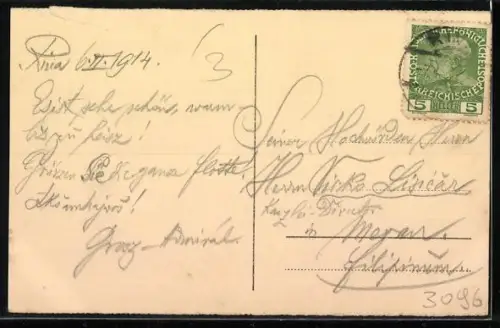 Riva 6.VI.1914.
3
Es ist sehr schön, warm
bis zu heiss!
Grüssen Sie die ganze Flotte.
Gross-Admiral.
KAISERLICHKÖNIGLICHE
ÖSTERREICHISCHE POST
5 HELLER 5
Seiner Hochwürden Herrn
Herrn Vinko Lisičar
Kanzlei-Direktor
in
3096